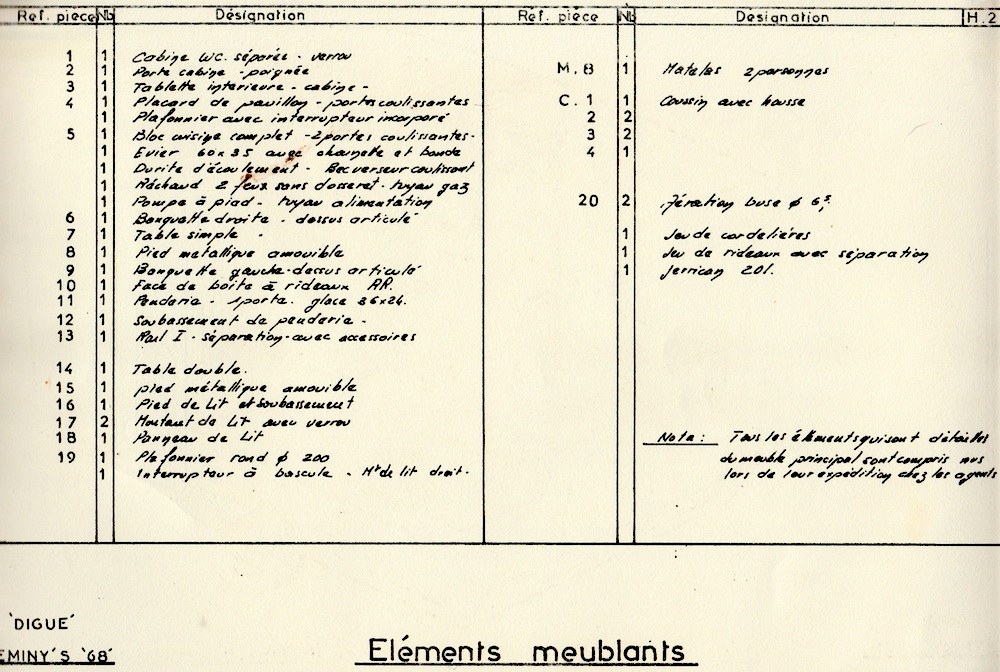 Ref. pièce Nb Désignation
1 1 Cabine WC. séparée - verrou
2 1 Porte cabine - poignée
3 1 Tablette interieure - cabine -
4 1 Placard de pavillon - portes coulissantes
1 Plafonnier avec interrupteur incorporé
5 1 Bloc cuisine complet - 2 portes coulissantes -
1 Evier 60x35 avec et bonde
1 Durite d'écoulement - Bec verseur coulissant
1 Réchaud 2 feux sans dosseret - tuyau gaz
1 Pompe à pied - tuyau alimentation
6 1 Banquette droite - dessus articulé
7 1 Table simple -
8 1 Pied metallique amovible
9 1 Banquette gauche - dessus articulé
10 1 Face de boite à rideaux AR.
11 1 Penderie - 1 porte. glace 36x24.
12 1 Soubassement de penderie -
13 1 Rail I - séparation - avec accessoires
14 1 Table double.
15 1 pied métallique amovible
16 1 Pied de Lit et Soubassement
17 2 Montant de Lit avec verrou
18 1 Panneau de Lit
19 1 Plafonnier rond ϕ 200
1 Interrupteur à bascule - Mt de lit droit -
Réf. pièce Nb Designation H.2
M.8 1 Matelas 2 personnes
C.1 1 Coussin avec housse
2 2
3 2
4 1
20 2 Aération buse ϕ
1 Jeu de cordelières
1 Jeu de rideaux avec séparation
1 Jerrican 20l.
Nota : Tous les élèments qui sont détaillés
du meuble principal sont compris
lors de leur expédition chez les agents
'DIGUE'
EMINY'S '68'
Eléments meublants